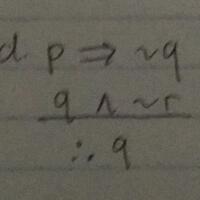 d. p ⇒ ~q
q ∧ ~r
∴ q